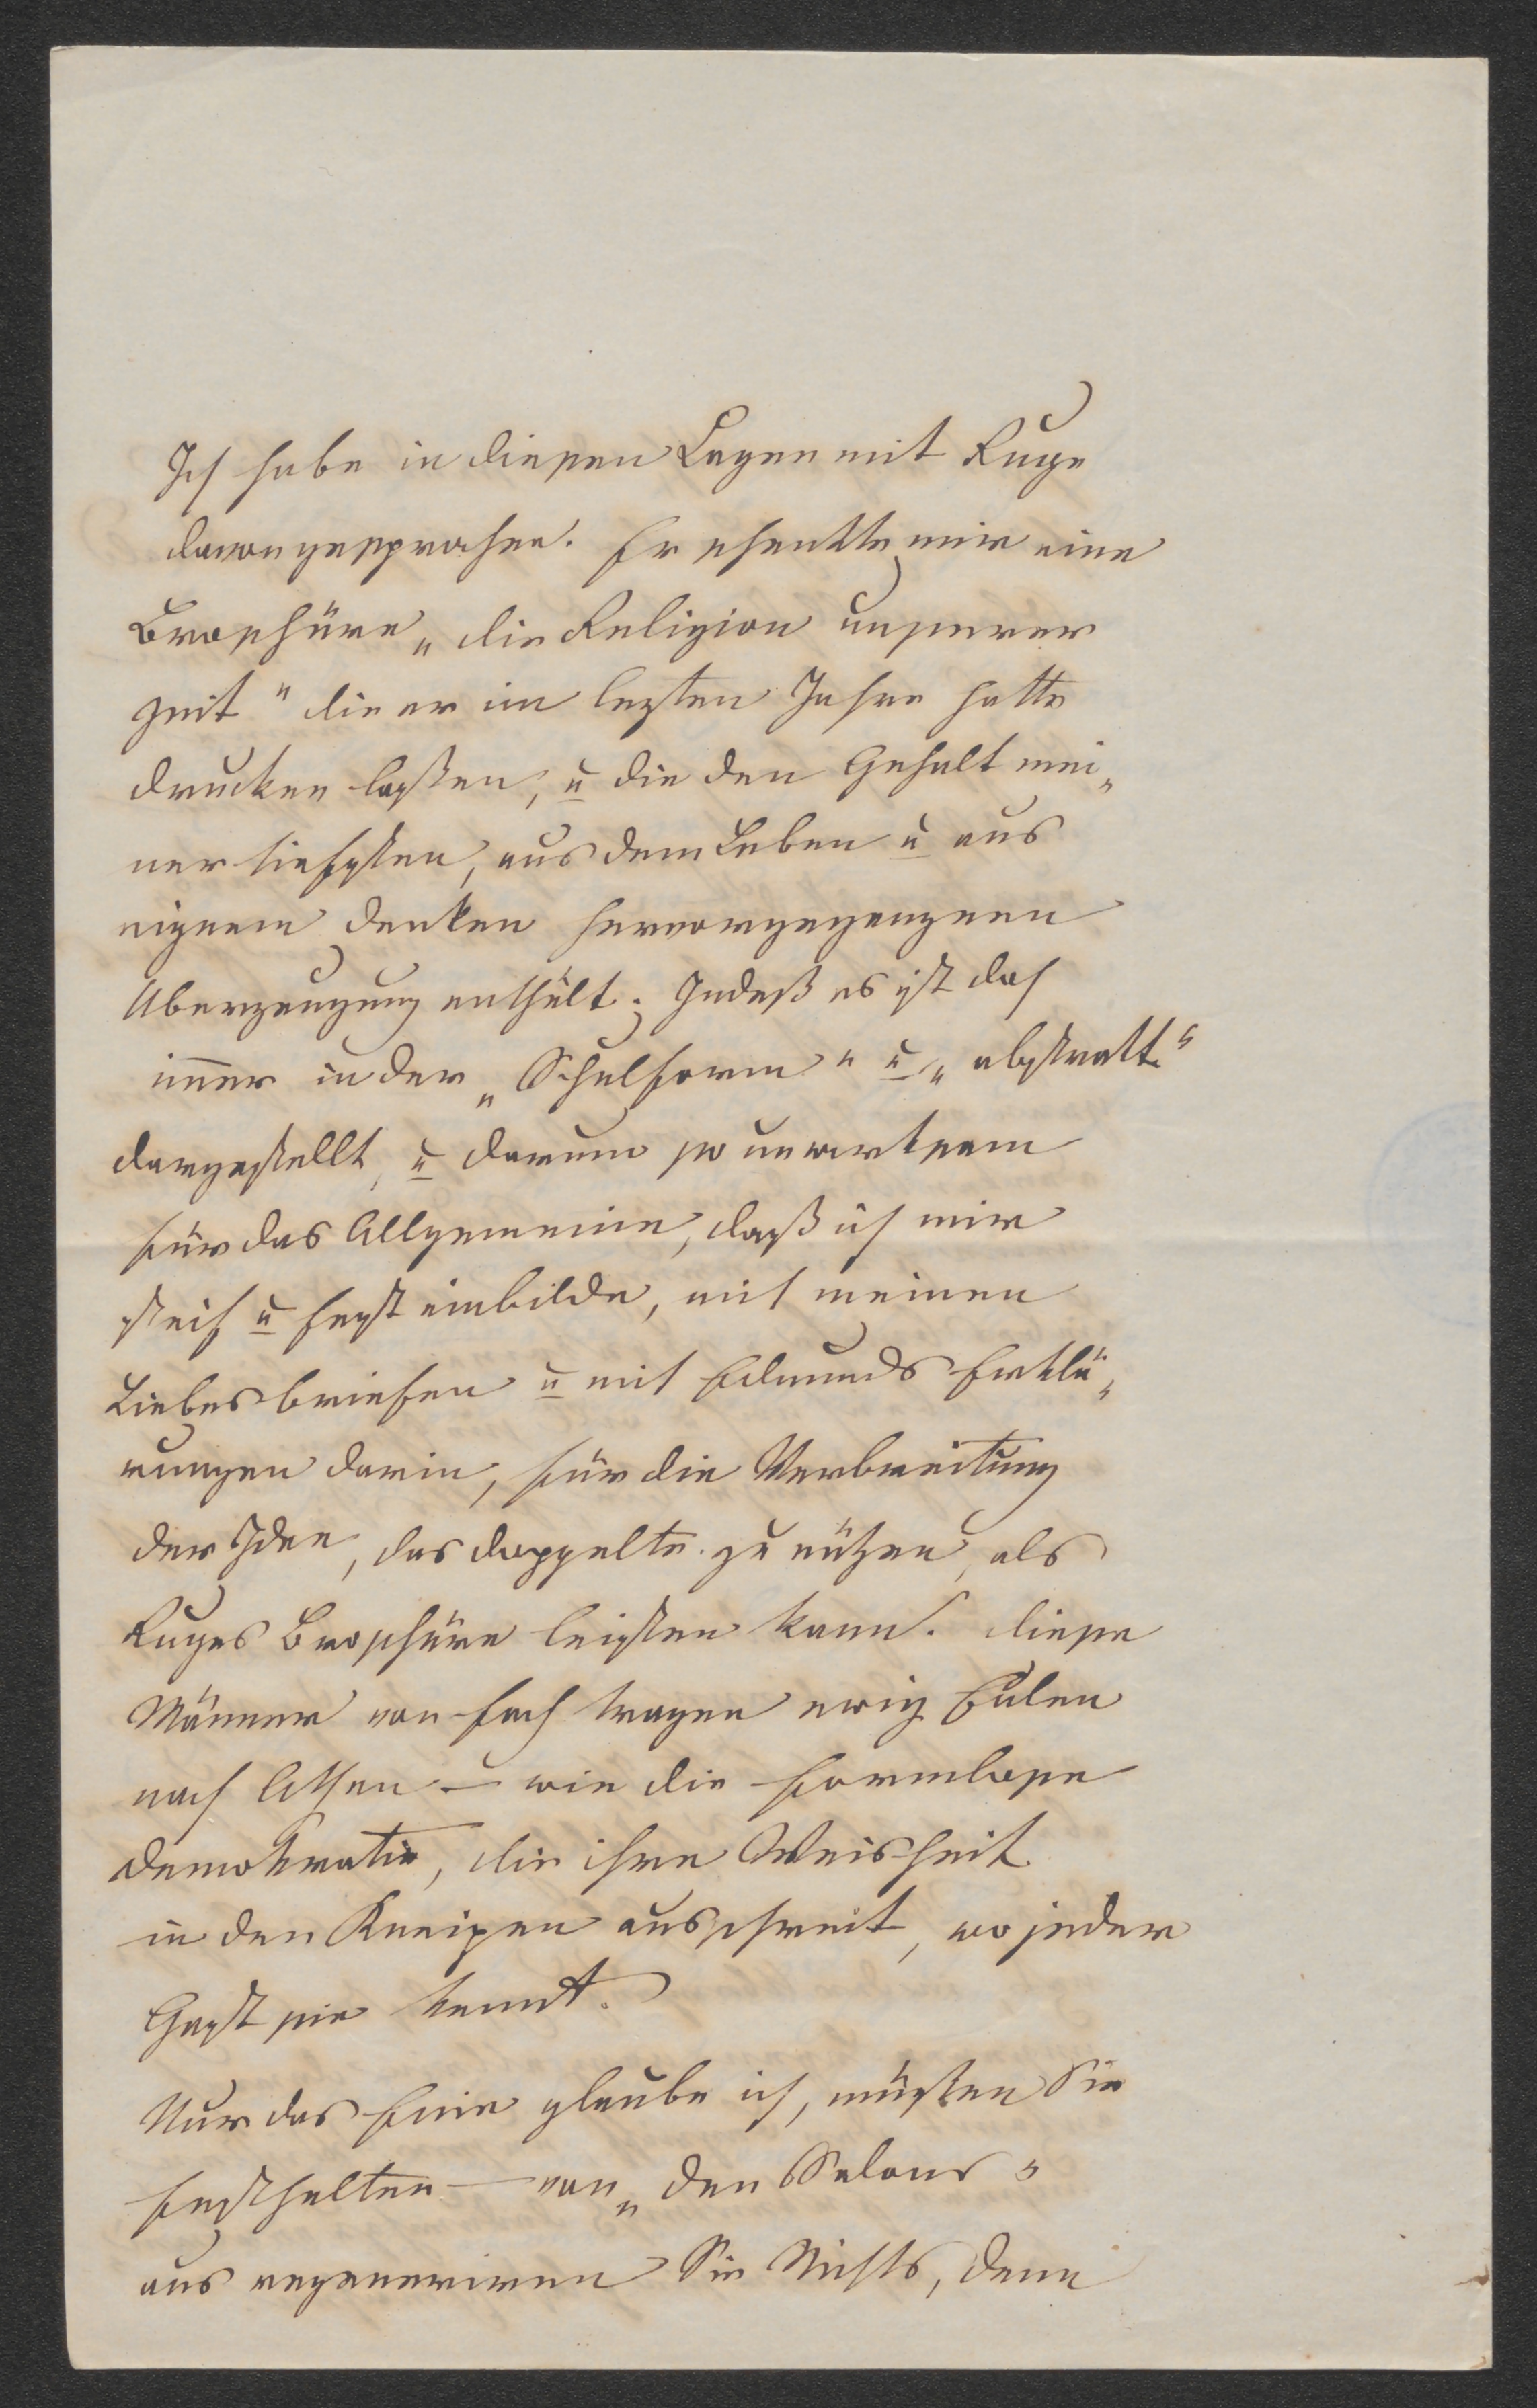 Ich habe in diesen Tagen mit Ruge
davon gesprochen. Er schenkte mir eine
Broschüre „die Religion unserer
Zeit" die er im lezten Jahre hatte
drucken laßen, u die den Gehalt mei„
ner tiefsten, aus dem Leben u aus
eignem Denken hervorgegangnen
Überzeugung enthält. Indeß es ist das
im̅er in der „Schulform" u „abstrakt"
dargestellt, u darum so unwirksam
für das Allgemeine, daß ich mir
steif u fest einbilde, mit meinen
Liebesbriefen u mit Edmunds Erklä„
rungen darin, für die Verbreitung
der Idee, das doppelte zu nützen, als
Ruges Broschüre leisten kann. Diese
Männer von Fach tragen ewig Eulen
nach Athen — wie die formlose
Demokratie, die ihre Weisheit
in den Kneipen ausschreit, wo jeder
Gast sie kennt.
Nur das Eine glaube ich, müßten Sie
festhalten — von „den Salons"
aus regeneriren Sie Nichts, denn